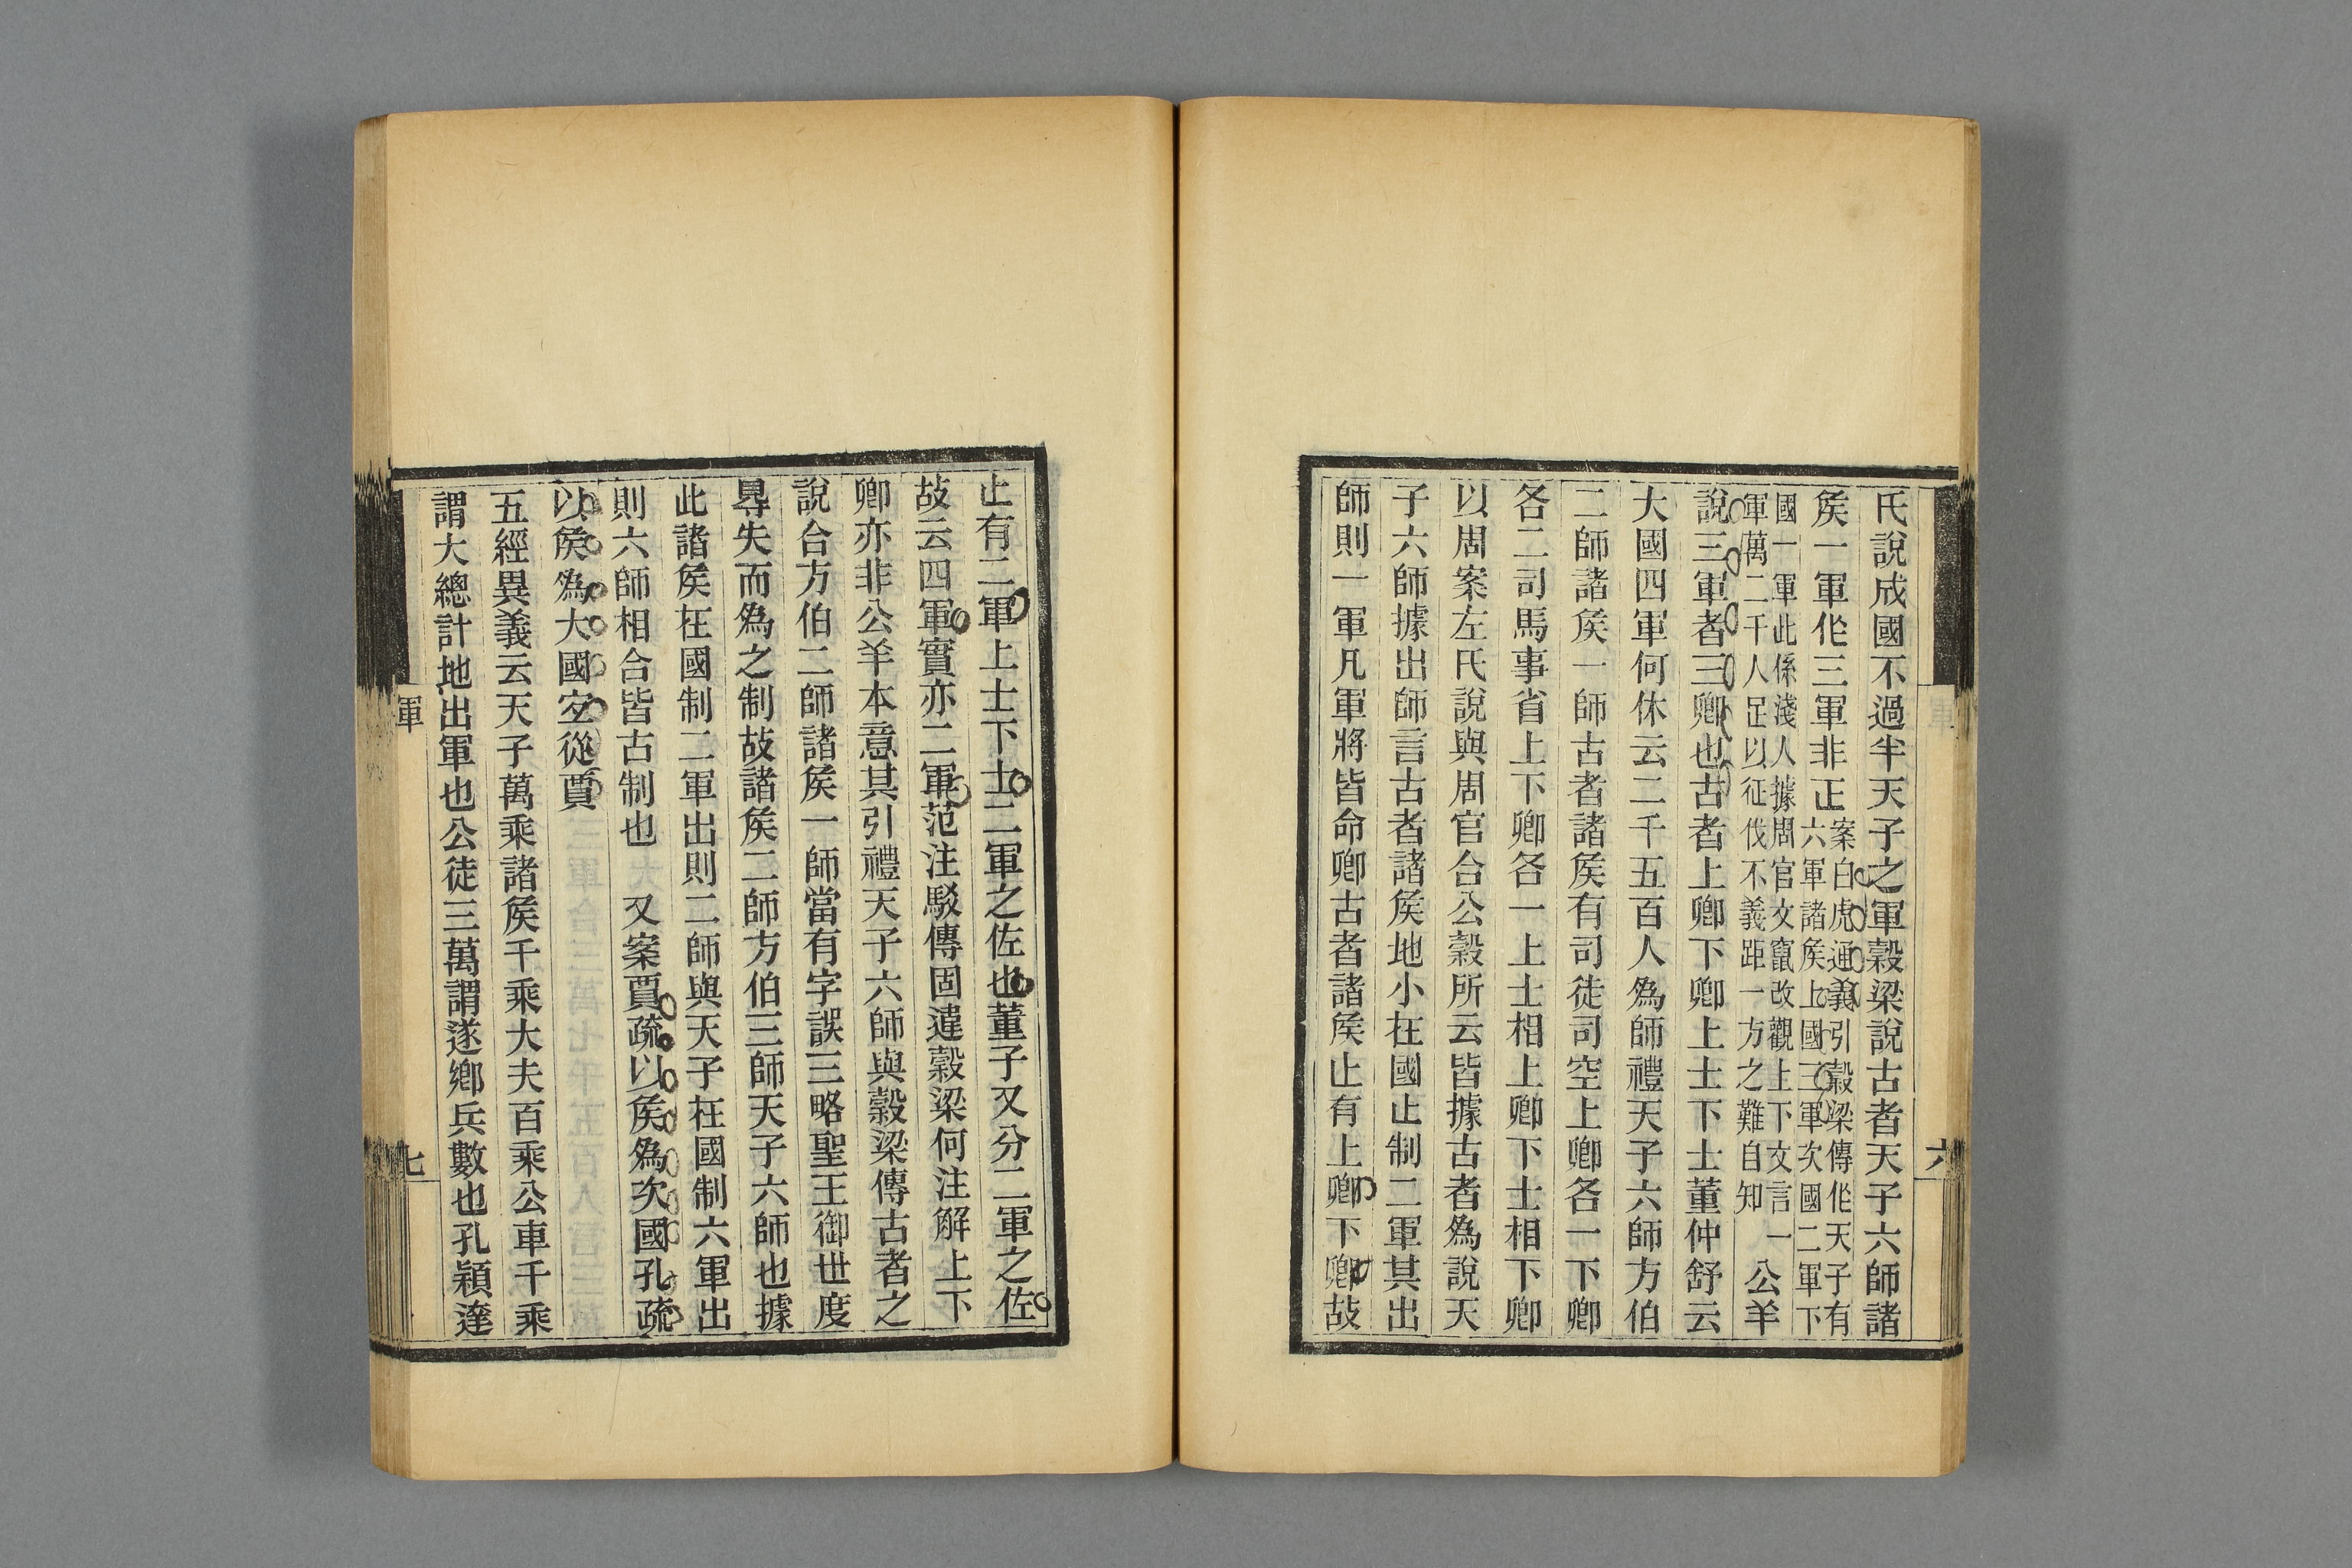 氏說成國不過半天子之軍穀梁說古者天子六師諸
矦一軍作三軍非正案白虎通義引穀梁傳作天子有
六軍諸矦上國三軍次國二軍下
國一軍此係淺人據周官文竄改觀上下文言一
軍萬二千人足以征伐不義距一方之難自知公羊
說三軍者三卿也古者上卿下卿上士下士董仲舒云
大國四軍何休云二千五百人爲師禮天子六師方伯
二師諸矦一師古者諸矦有司徒司空上卿各一下卿
各二司馬事省上下卿各一上士相上卿下士相下卿
以周案左氏說與周官合公穀所云皆據古者爲說天
子六師據出師言古者諸矦地小在國止制二軍其出
師則一軍凡軍將皆命卿古者諸矦止有上卿下卿故
六
止有二軍上士下士二軍之佐也董子又分二軍之佐
故云四軍實亦二軍范注駁傳固違穀梁何注解上下
卿亦非公羊本意其引禮天子六師與穀梁傳古者之
說合方伯二師諸矦一師當有字誤三略聖王御世度
㝵失而爲之制故諸矦二師方伯三師天子六師也據
此諸矦在國制二軍出則二師與天子在國制六軍出
則六師相合皆古制也　又案賈疏以矦爲次國孔疏
以矦爲大國宐從賈
五經異義云天子萬乘諸矦千乘大夫百乘公車千乘
謂大總計地出軍也公徒三萬謂遂鄉兵數也孔穎達
軍
七